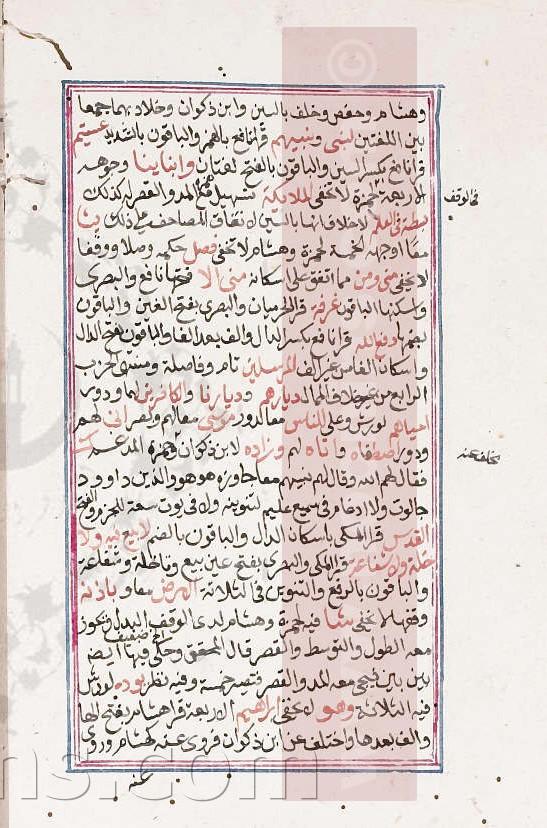 وهشام وحفص وخلف بالسين وابن ذكوان وخلاد بهما جمعا
بين اللغتين لنبي ونبيهم قرأ نافع بالهمز والباقون بالتشديد عسيتم
قرأ نافع بكسر السين والباقون بالفتح لغتان وابناينا وجوهه
الاربعة لحمزة لا تخفى الملائكة تسهيل همزه مع المد والقصر له كذلك
في الوقف
بسطة في العلم لا خلاف انها بالسين لاتفاق المصاحف على ذلك يشا
معا اوجهه الخمسة لحمزة وهشام لا تخفى فصل حكمه وصلا ووقفا
لا يخفى مني ومن مما اتفق على اسكانه مني الا فتحها نافع والبصري
واسكنها الباقون غرفة قرأ الحرميان والبصري بفتح الغين والباقون
بضمها دفع الله قرأ نافع بكسر الدال والف بعد الفا والباقون بفتح الدال
واسكان الفا من غير الف المرسلين تام وفاصلة ومنتهى الحزب
الرابع من غير خلاف الممال ديارهم وديارنا والكافرين لهما ودوري
احياهم لورش وعلي للناس معا لدوري موسى معا لهم وبصري انى لهم
ودوري اصطفاه واتاه لهم وزاده لابن ذكوان وحمزة المدغم
بخلف عنه
فقال لهم الله وقال لهم نبيهم معا جاوزه هو والذين داوود
جالوت ولا ادغام في سميع عليم لتنوينه ولا في يوت سعة للجزم والفتح
القدس قرأ المكي باسكان الدال والباقون بالضم لا بيع فيه ولا
خلة ولا شفاعة قرأ المكي والبصري بفتح عين بيع وتا خلة وشفاعة
والباقون بالرفع والتنوين في الثلاثة الارض معا وباذنه
وقفها لا يخفى شا فيه لحمزة وهشام لدى الوقف البدل فيجوز
معه الطول والتوسط والقصر قال المحقق وحكي فيها ايضا
بين بين فيجيء معه المد والقصر فتصير خمسة وفيه نظر يوده لورش
فيه الثلاثة وهو لا يخفى ابراهيم الاربعة قرأ هشام بفتح الها
والف بعدها واختلف عن ابن ذكوان فروى عنه كهشام وروى
عنه